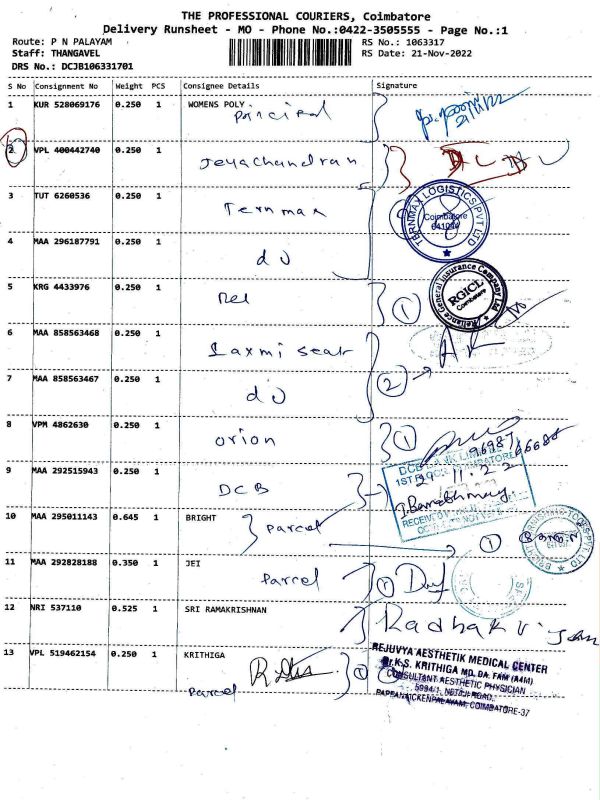 THE PROFESSIONAL COURIERS, Coimbatore
Delivery Runsheet - MO - Phone No.:0422-3505555 - Page No.:1
Route: P N PALAYAM RS No.: 1063317
Staff: THANGAVEL RS Date: 21-Nov-2022
DRS No.: DCJB106331701
S No Consignment No Weight PCS Consignee Details Signature
1 KUR 528069176 0.250 1 WOMENS POLY
Principal
2 VPL 400442740 0.250 1
Jeyachandran
3 TUT 6260536 0.250 1
Ternmax
TERNMAX LOGISTICS PVT LTD
Coimbatore
4 MAA 296187791 0.250 1
do
5 KRG 4433976 0.250 1
Rel
1
Reliance General Insurance Company Ltd
RGICL
Coimbatore
6 MAA 858563468 0.250 1
Laxmi seat
7 MAA 858563467 0.250 1
do
2
8 VPM 4862630 0.250 1
orion
1
9 MAA 292515943 0.250 1
DCB
DCB BANK
1ST FLOOR
10 MAA 295011143 0.645 1 BRIGHT
parcel
1
11 MAA 292828188 0.350 1 JEI
parcel
12 NRI 537110 0.525 1 SRI RAMAKRISHNAN
13 VPL 519462154 0.250 1 KRITHIGA
parcel
REJUVYA AESTHETIK MEDICAL CENTER
Dr.K.S. KRITHIGA MD, DA, FAM (A4M)
CONSULTANT AESTHETIC PHYSICIAN
PAPPANAICKENPALAYAM, COIMBATORE-37